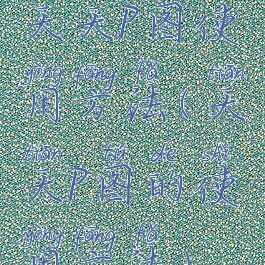 天天P图使
yòng fāng fǎ tiān
用方法(天
tiān tú de shǐ
天P图的使
yòng fāng fǎ
用方法)